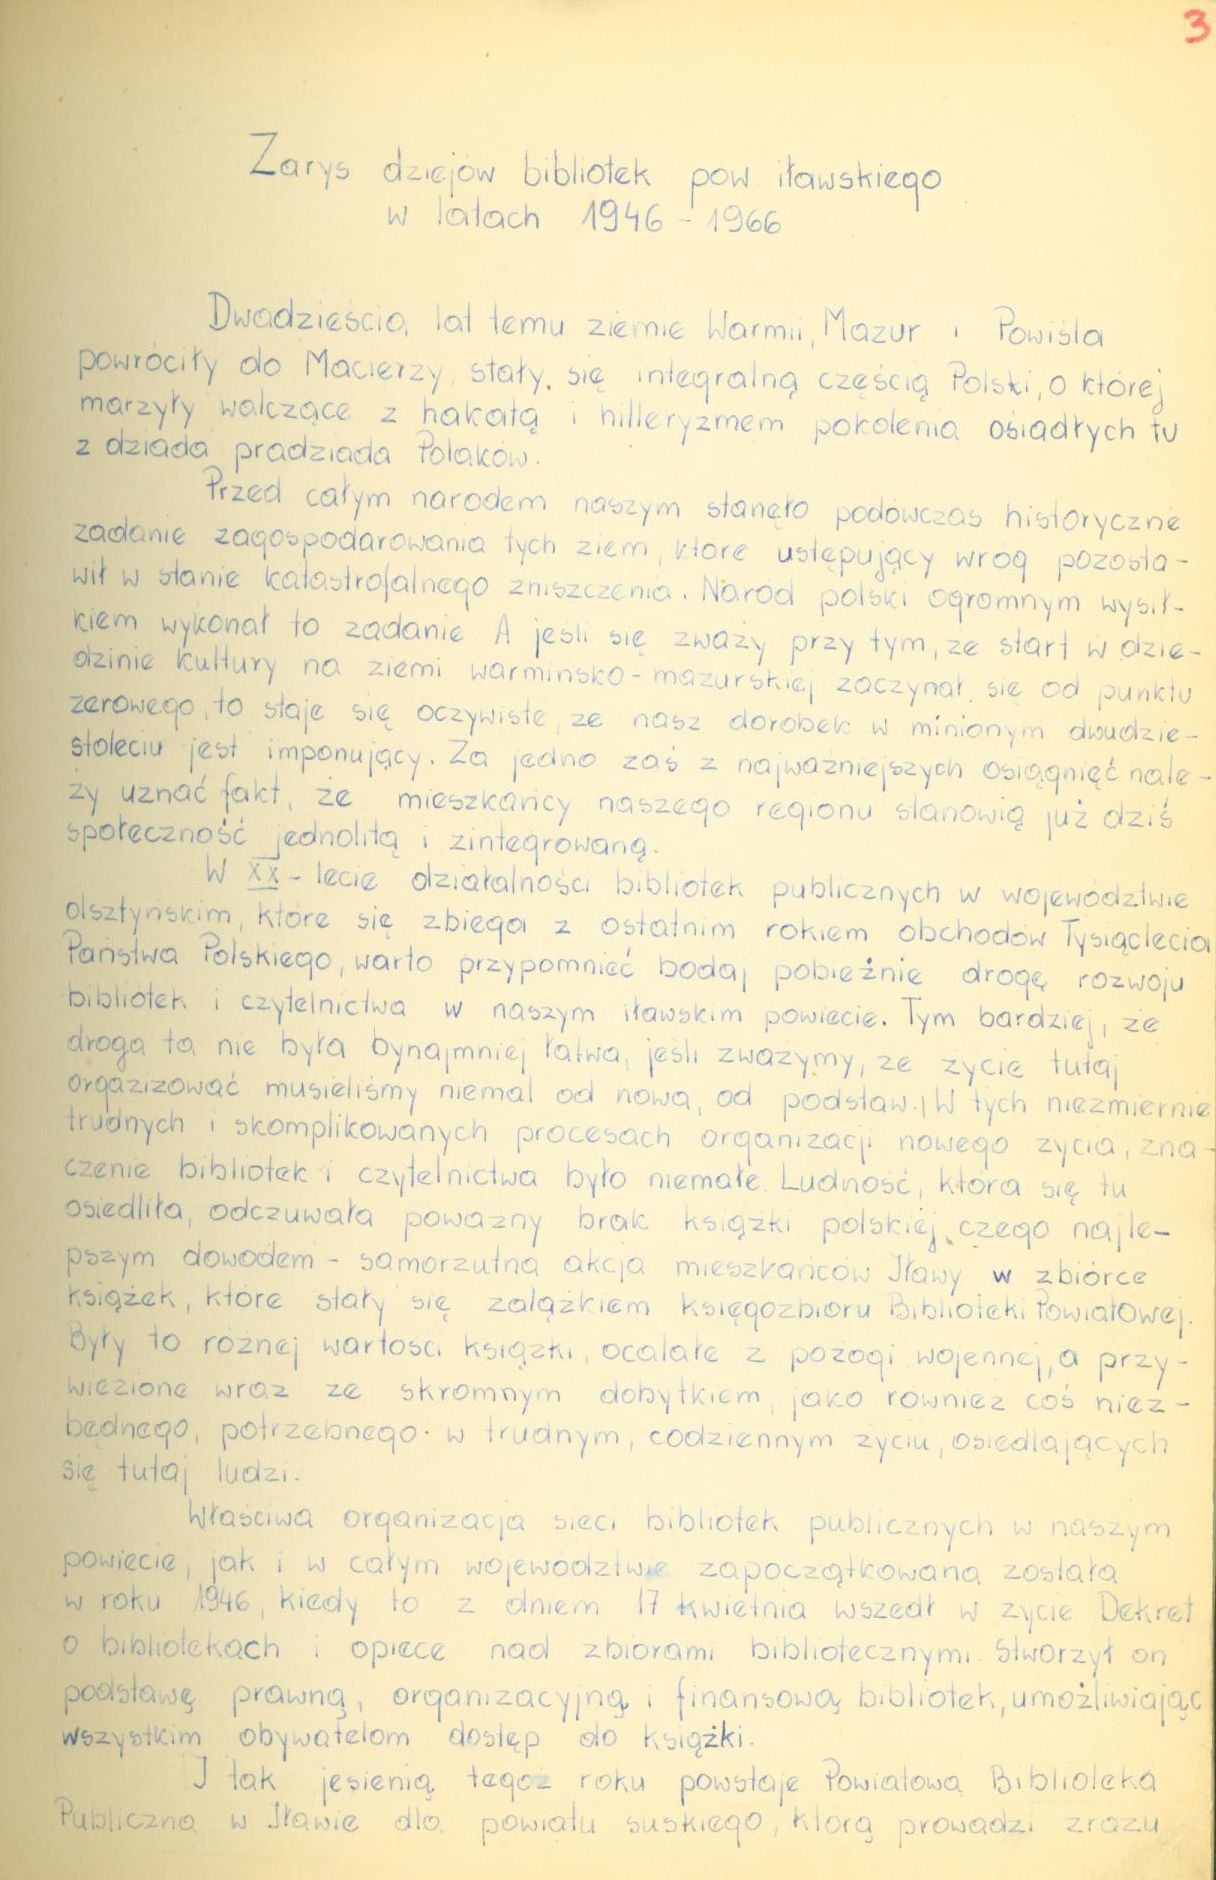 3
Zarys dziejów bibliotek pow. iławskiego
w latach 1946 - 1966
Dwadzieścia lat temu ziemie Warmii, Mazur i Powiśla
powróciły do Macierzy, stały się integralną częścią Polski, o której
marzyły walczące z hakatą i hitleryzmem pokolenia osiadłych tu
z dziada pradziada Polaków.
Przed całym narodem naszym stanęło podówczas historyczne
zadanie zagospodarowania tych ziem, które ustępujący wróg pozosta-
wił w stanie katastrofalnego zniszczenia. Naród polski ogromnym wysił-
kiem wykonał to zadanie. A jeśli się zważy przy tym, że start w dzie-
dzinie kultury na ziemi warmińsko-mazurskiej zaczynał się od punktu
zerowego, to staje się oczywiste, że nasz dorobek w minionym dwudzie-
stoleciu jest imponujący. Za jedno zaś z najważniejszych osiągnięć nale-
ży uznać fakt, że mieszkańcy naszego regionu stanowią już dziś
społeczność jednolitą i zintegrowaną.
W XX-lecie działalności bibliotek publicznych w województwie
olsztyńskim, które się zbiega z ostatnim rokiem obchodów Tysiąclecia
Państwa Polskiego, warto przypomnieć bodaj pobieżnie drogę rozwoju
bibliotek i czytelnictwa w naszym iławskim powiecie. Tym bardziej, że
droga ta nie była bynajmniej łatwa, jeśli zważymy, że życie tutaj
orgazizować musieliśmy niemal od nowa, od podstaw. W tych niezmiernie
trudnych i skomplikowanych procesach organizacji nowego życia, zna-
czenie bibliotek i czytelnictwa było niemałe. Ludność, która się tu
osiedliła, odczuwała poważny brak książki polskiej, czego najle-
pszym dowodem - samorzutna akcja mieszkańców Iławy w zbiórce
książek, które stały się zalążkiem księgozbioru Biblioteki Powiatowej.
Były to różnej wartości książki, ocalałe z pożogi wojennej, a przy-
wiezione wraz ze skromnym dobytkiem, jako również coś niez-
będnego, potrzebnego w trudnym, codziennym życiu, osiedlających
się tutaj ludzi.
Właściwa organizacja sieci bibliotek publicznych w naszym
powiecie, jak i w całym województwie zapoczątkowana została
w roku 1946, kiedy to z dniem 17 kwietnia wszedł w życie Dekret
o bibliotekach i opiece nad zbiorami bibliotecznymi. Stworzył on
podstawę prawną, organizacyjną i finansową bibliotek, umożliwiając
wszystkim obywatelom dostęp do książki.
I tak jesienią tegoż roku powstaje Powiatowa Biblioteka
Publiczna w Iławie dla powiatu suskiego, którą prowadzi zrazu